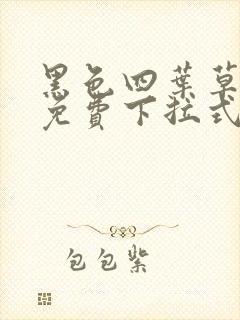 黑色四葉草
免費下拉式
包包紫